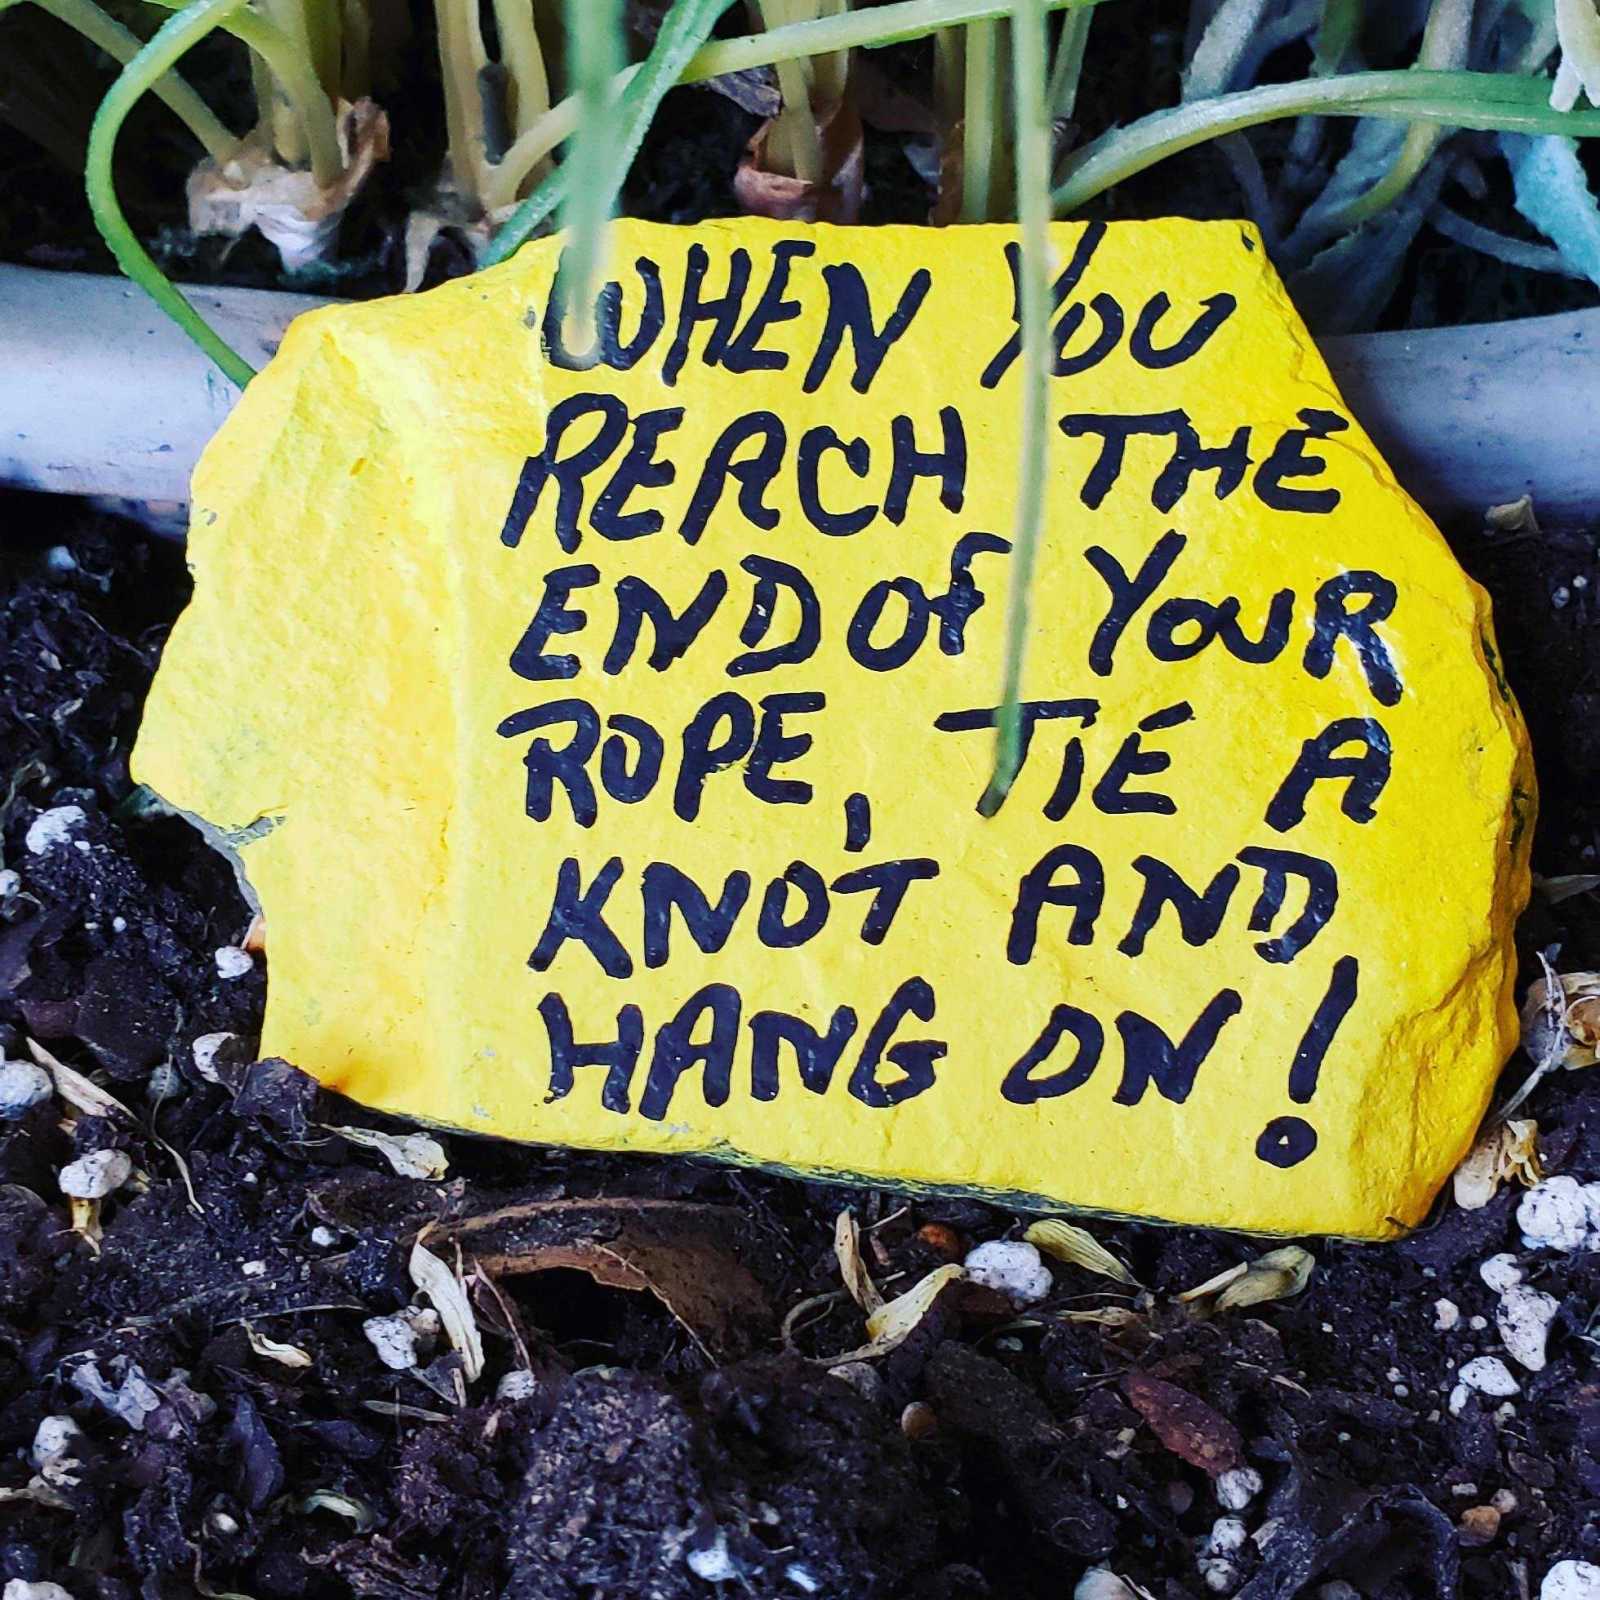 WHEN YOU
REACH THE
END OF YOUR
ROPE, TIE A
KNOT AND
HANG ON!